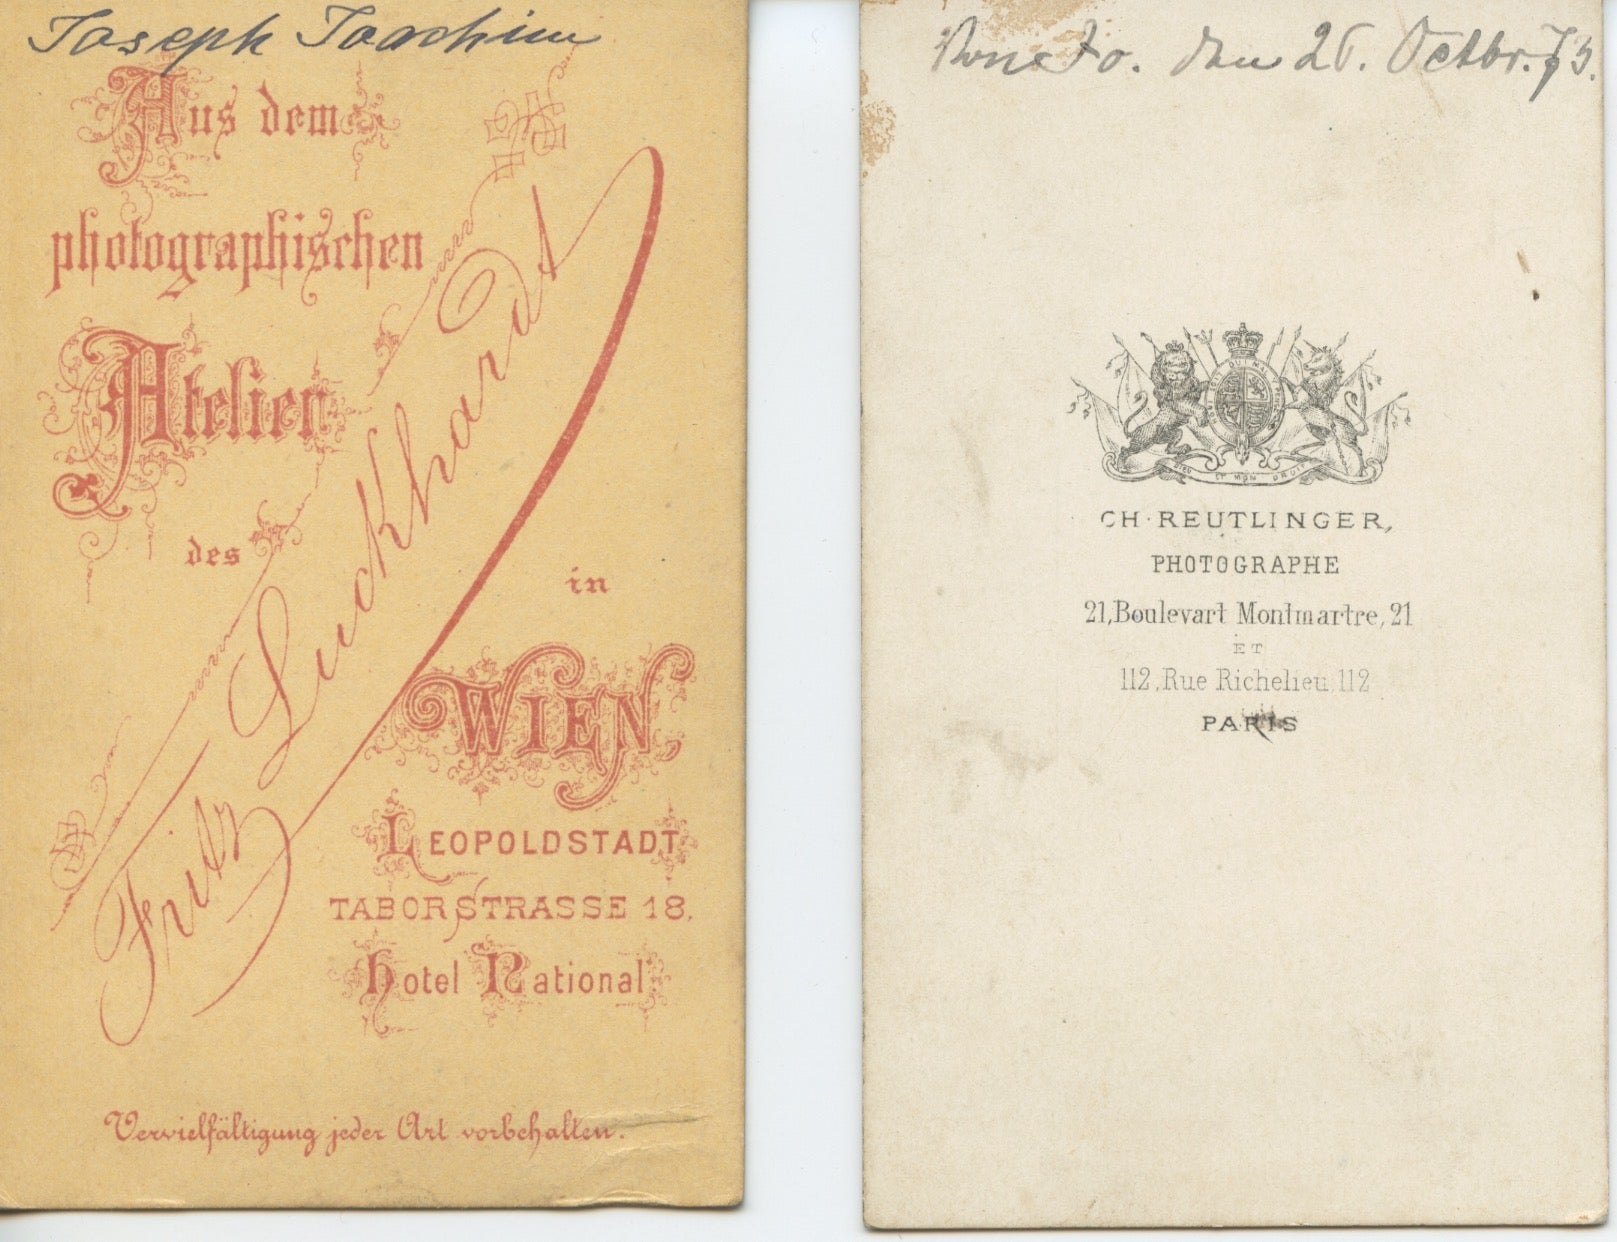 Joseph Joachim
Aus dem
photographischen
Atelier
des
Fritz Luckhardt
in
WIEN,
LEOPOLDSTADT
TABORSTRASSE 18.
Hotel National
Vervielfältigung jeder Art vorbehalten.
Von Jo. den 26. Octbr. 73.
DIEU ET MON DROIT
CH. REUTLINGER,
PHOTOGRAPHE
21, Boulevart Montmartre, 21
ET
112, Rue Richelieu, 112
PARIS